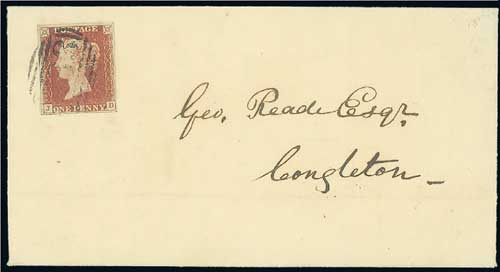 POSTAGE
J ONE PENNY D
Geo. Reade Esqr.
Congleton